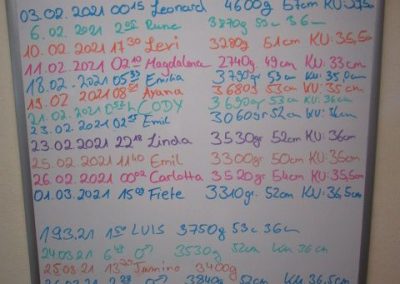 03.02.2021 00 15 Leonard 4600g 57cm KU:37,5
6.02. 2021 Rune 3870g 53c 36cm
10.02.2021 17 30 Levi 3280g 51cm KU:35,5
11.02.2021 02 10 Magdalena 2740g 49cm KU:33cm
18.02.2021 05 33 Emilia 3790gr 53cm KU:35,0cm
19.02.2021 Ayana 3680g 53cm KU:36cm
21.02.2021 CODY 3690gr 53cm KU:36cm
23.02.2021 02 Emil 3060gr 52cm KU:36cm
23.02.2021 22 19 Linda 3530gr 52cm KU:36cm
25.02.2021 11 40 Emil 3300gr 50cm KU:35cm
26.02.2021 00 02 Carlotta 3520gr 54cm KU:35,5cm
01.03.2021 15 Fiete 3310gr. 52cm KU:36,5cm
19.3.21 15 LUIS 3750g 53c 36cm
24.03.21 6 ♂ 3530g 52cm KU 36cm
25.03.21 13 Jannino 3400g
♂ 3840g 52cm KU 36,5cm